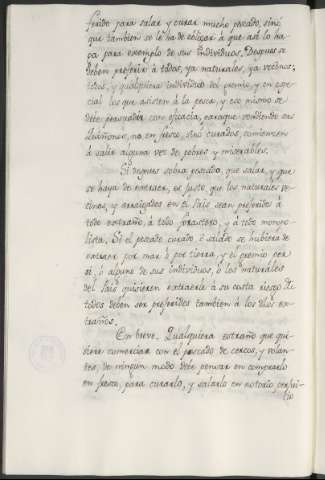 frirlo para salar y curar mucho pescado, sinó
que tambien se le ha de obligar à que asi lo ha-
ga para exemplo de sus Individuos. Despues se
deben preferir à todos, ya naturales, ya vecinos,
todos, y qualquiera individuo del gremio, y en espe-
cial los que asisten à la pesca, y eso mismo se
debe persuadir con eficacia, paraque vendiendo sus
Quiñones, no en fresco, sino curados, comienzen
à salir alguna vez de pobres y miserables.
Si despues sobra pescado, que salar, y que
se haya de extraer, es justo, que los naturales ve-
cinos, y arraigados en el Pais sean preferidos à
todo extraño, à todo forastero, y à todo mono-
lista. Si el pescado curado ò salado se hubiera de
extraer por mar ò por tierra, y el gremio por
si, ò alguno de sus individuos, ò los naturales
del Pais quisieren extraerlo à su costa riesgo &
todos deben ser preferidos tambien à los dhos ex-
traños.
En breve. Qualquiera extraño que qui-
siere comerciar con el pescado de cercos, y volan-
tes, de ningun modo debe pensar en comprarlo
en fresco, para curarlo, y salarlo en notorio perjui-
cio